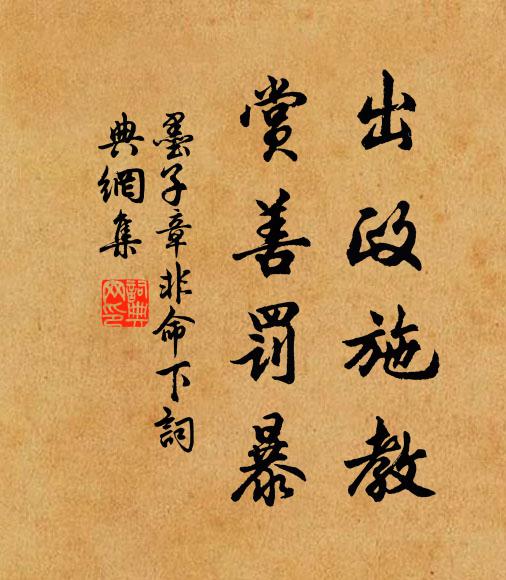 出政施教
賞善罰暴
墨子章非命下詞
典網集
詞典
网印